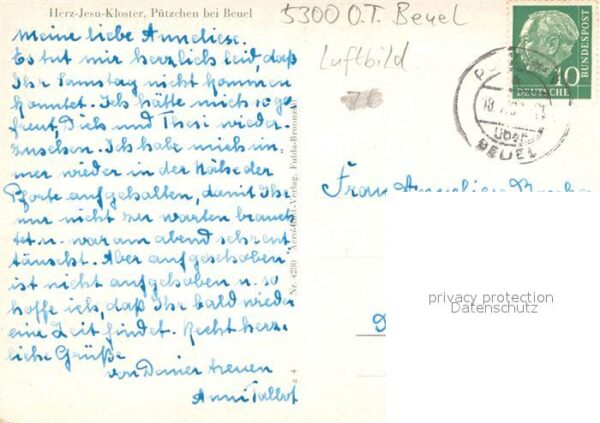 Herz-Jesu-Kloster, Pützchen bei Beuel
5300 O.T. Beuel
Luftbild
76
Meine liebe Anneliese.
Es tut mir herzlich leid, daß
Ihr Samstag nicht kommen
konntet. Ich hätte mich so ge
freut, Dich und Thesi wieder-
zusehen. Ich habe mich im-
mer wieder in der Nähe der
Pforte aufgehalten, damit Ihr
nur nicht zu warten brauch
tet u. war am abend sehr ent
täuscht. Aber aufgeschoben
ist nicht aufgehoben u. so
hoffe ich, daß Ihr bald wieder
eine Zeit findet. Recht herz-
liche Grüße
von Deiner treuen
Anni
Nr. 4230 Aero-Bild-Verlag, Fulda-Bronnzell
DEUTSCHE
BUNDESPOST
10
über
BEUEL
Frau Anneliese
D
privacy protection
Datenschutz